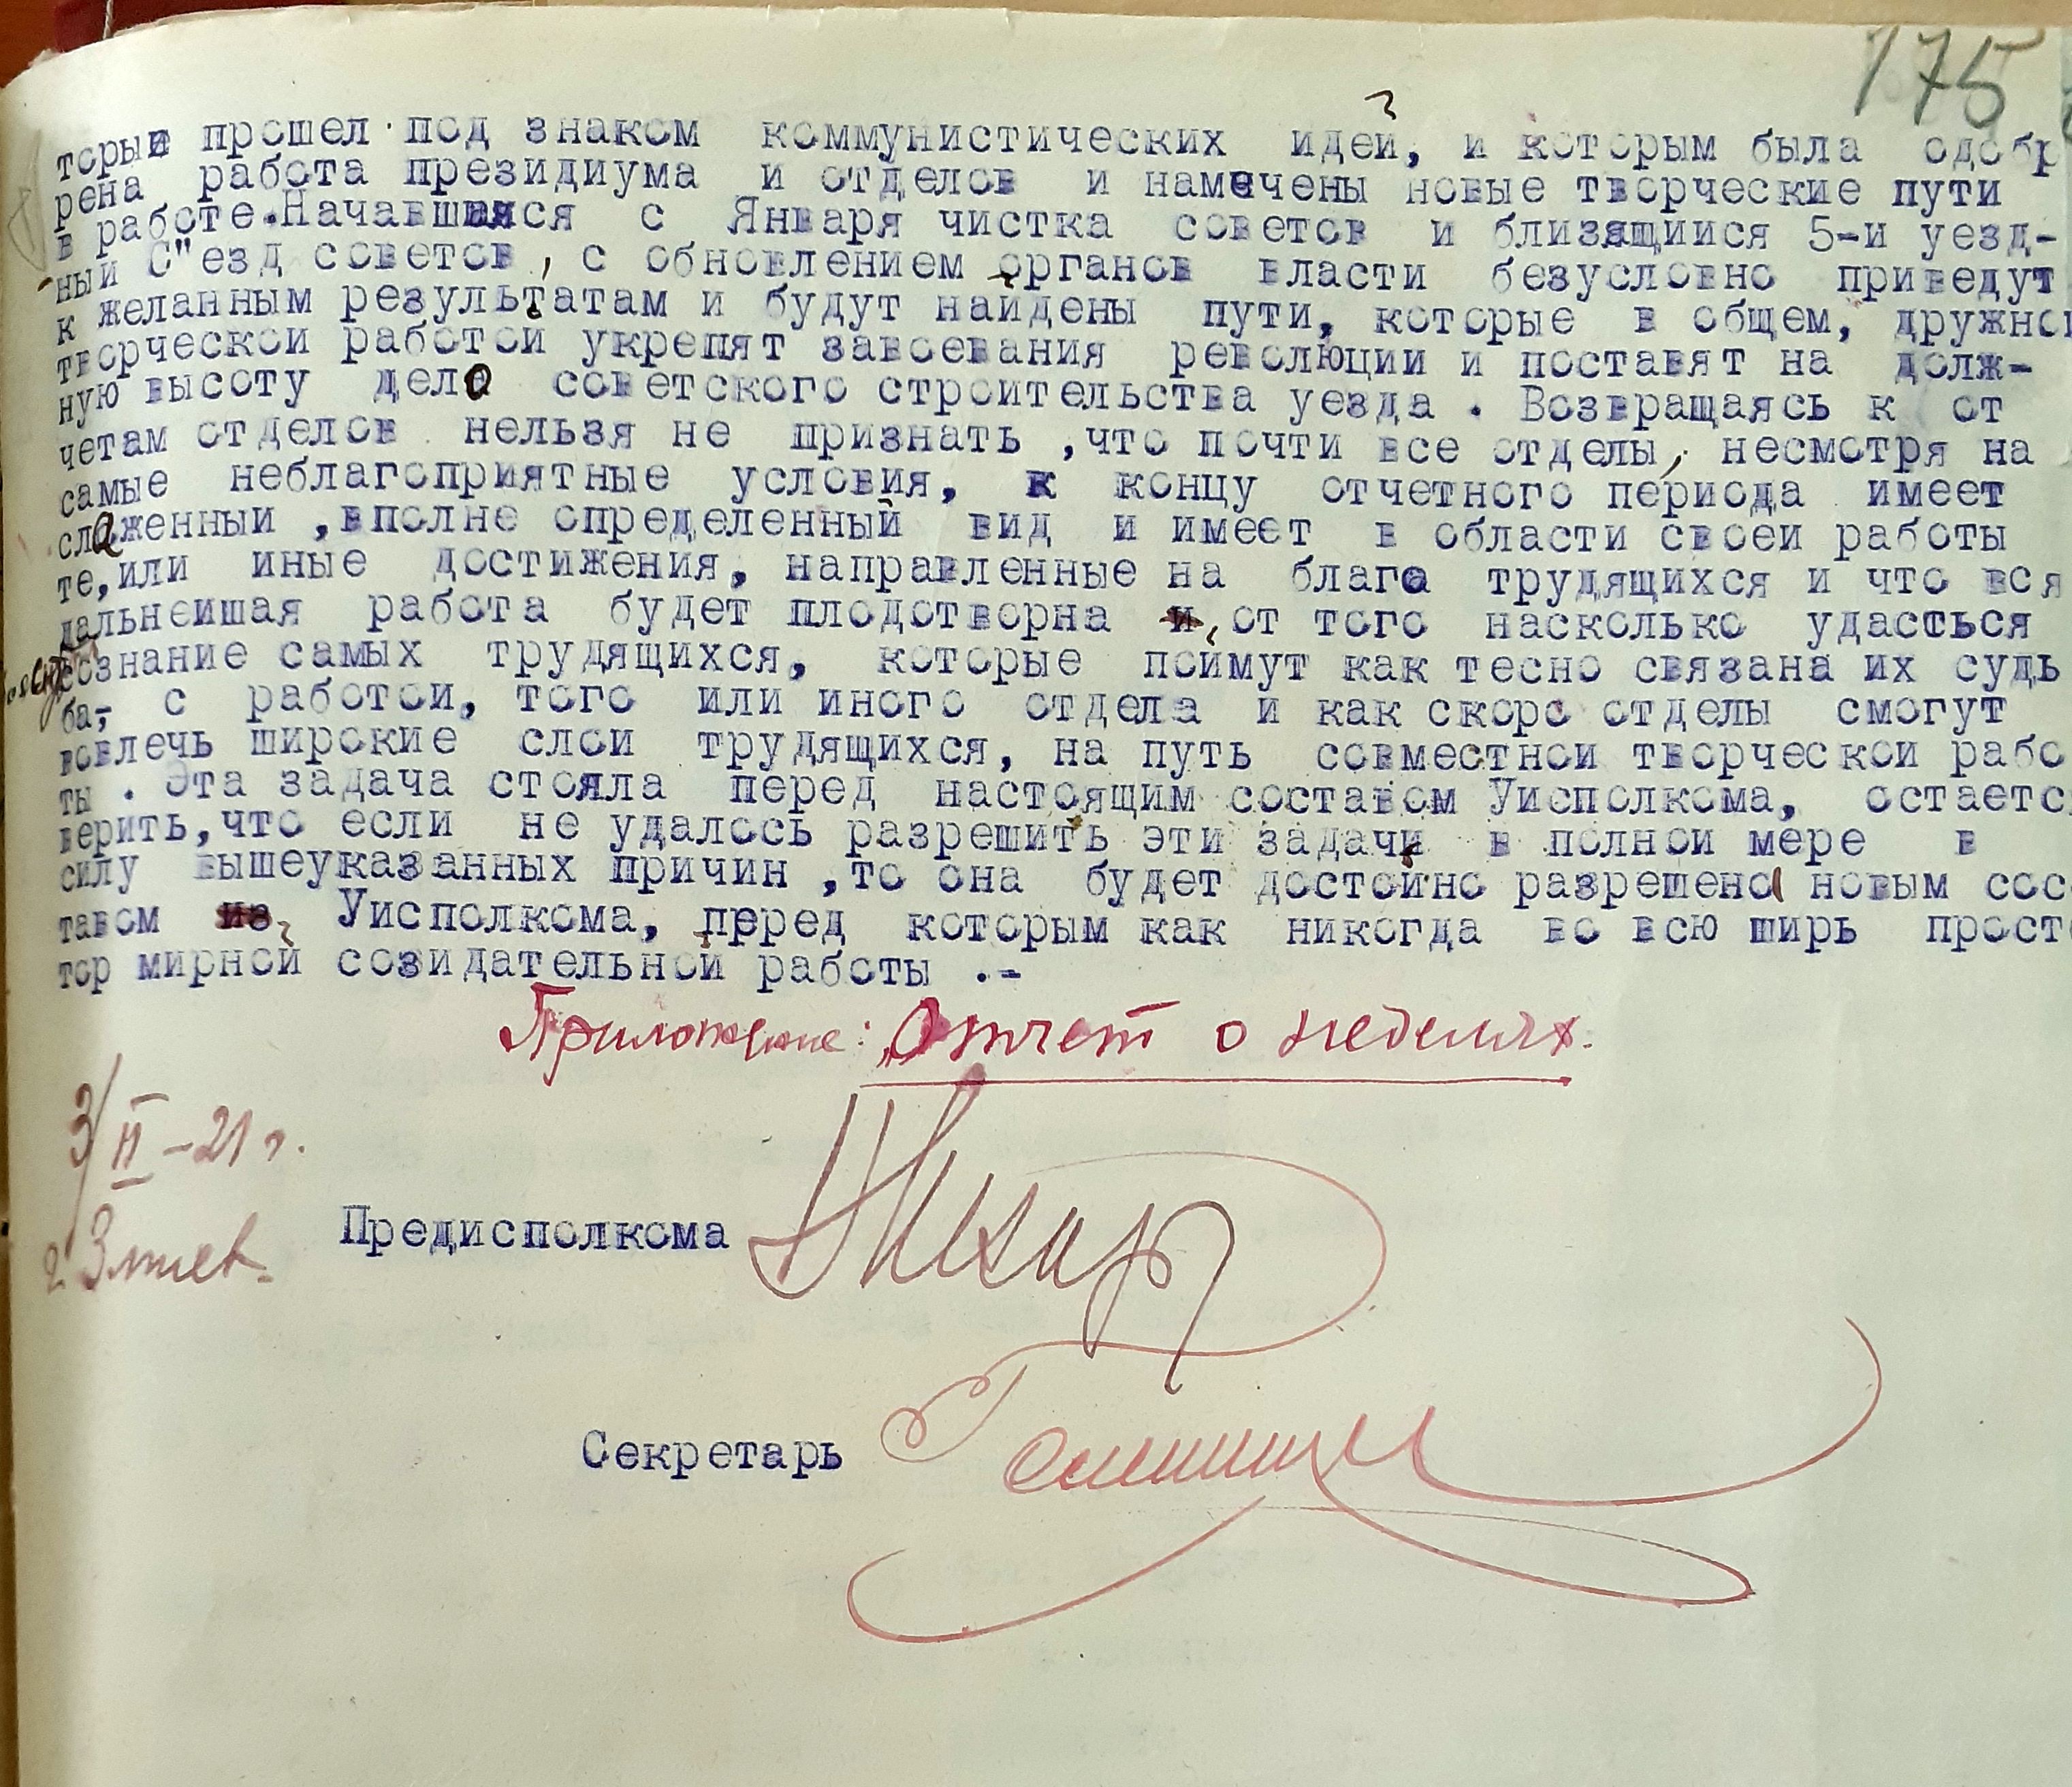 175
торый прошел под знаком коммунистических идей, и которым была одобр
рена работа президиума и отделов и намечены новые творческие пути
в работе.Начавшаяся с Января чистка советов и близящиися 5-и уезд-
ный С"езд советов, с обновлением органов власти безусловно приведут
к желанным результатам и будут найдены пути, которые в общем, дружно
творческой работой укрепят завоевания революции и поставят на долж-
ную высоту дело советского строительства уезда . Возвращаясь к от
четам отделов нельзя не признать ,что почти все отделы, несмотря на
самые неблагоприятные условия, к концу отчетного периода имеет
слаженный ,вполне определенный вид и имеет в области своей работы
те,или иные достижения, направленные на благо трудящихся и что вся
дальнейшая работа будет плодотворна от того насколько удасться
сознание самых трудящихся, которые поймут как тесно связана их судь
ба, с работой, того или иного отдела и как скоро отделы смогут
вовлечь широкие слои трудящихся, на путь совместной творческой рабо
ты . Эта задача стояла перед настоящим составом Уисполкома, остаетс
верить,что если не удалось разрешить эти задачи в полной мере в
силу вышеуказанных причин ,то она будет достойно разрешена новым сос
тавом Уисполкома, перед которым как никогда во всю ширь прост
тор мирной созидательной работы .-
Приложение: Отчет о неделях.
3/II-21 г.
Предисполкома
Секретарь